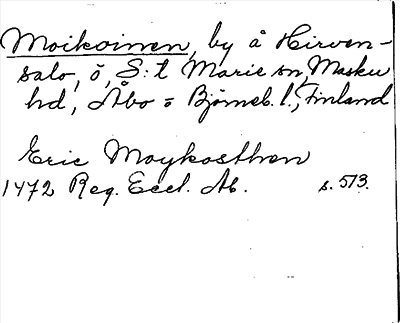 Moikoinen, by å Hirven-
salo, ö, S:t Marie sn, Masku
hd, Åbo = Björneb. l., Finland
Eric Moykosthen
1472 Reg. Eccl. Ab. s. 513.